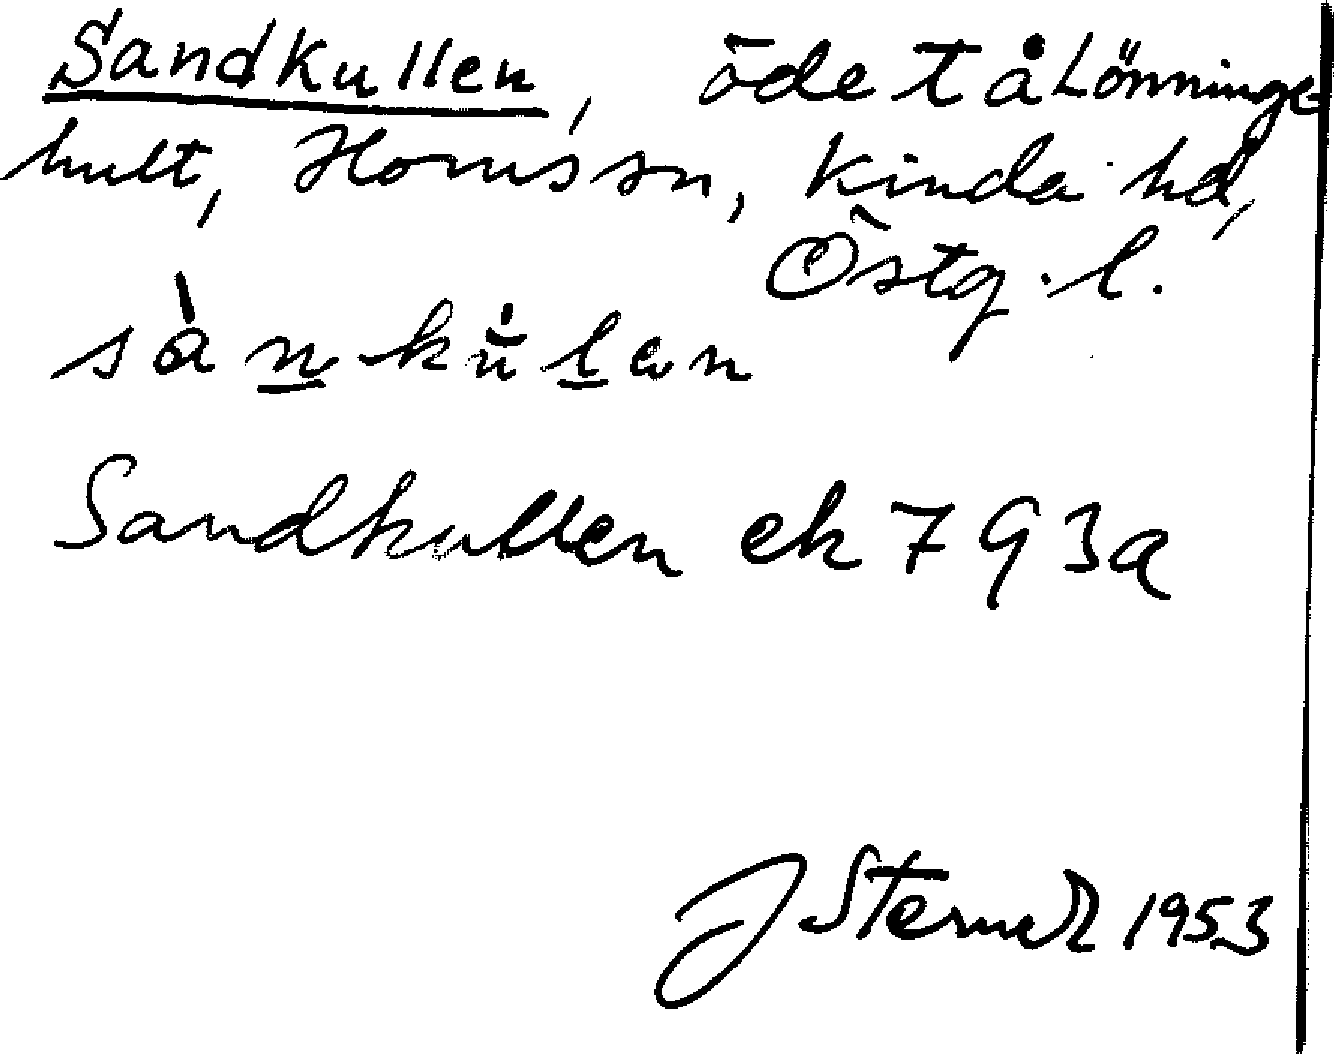 Sandkullen, öde t å Lönninge
hult, Horns sn, Kinda hd,
Östg. l.
sànkůlan
Sandkullen ek 793a
J Sterner 1953